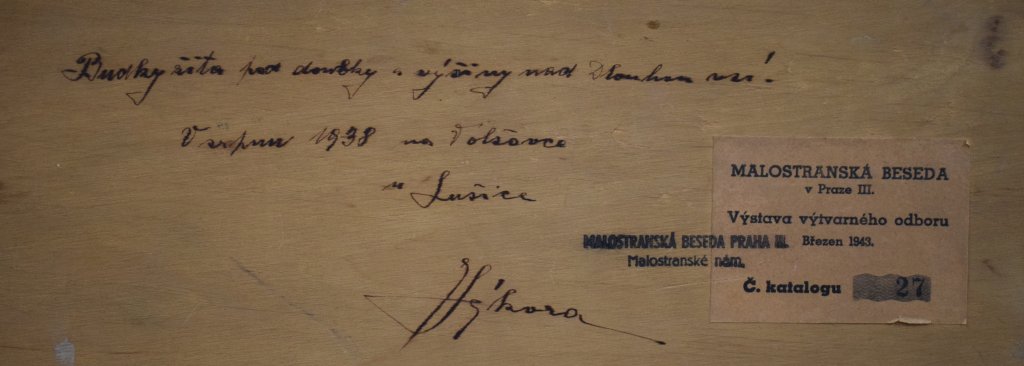 Budky žita pod doušky a výšiny nad Dlouhou vsí.
V srpnu 1938 na Volšovce
u Sušice
Sýkora
MALOSTRANSKÁ BESEDA
v Praze III.
Výstava výtvarného odboru
Březen 1943.
Č. katalogu 27
MALOSTRANSKÁ BESEDA PRAHA III.
Malostranské nám.